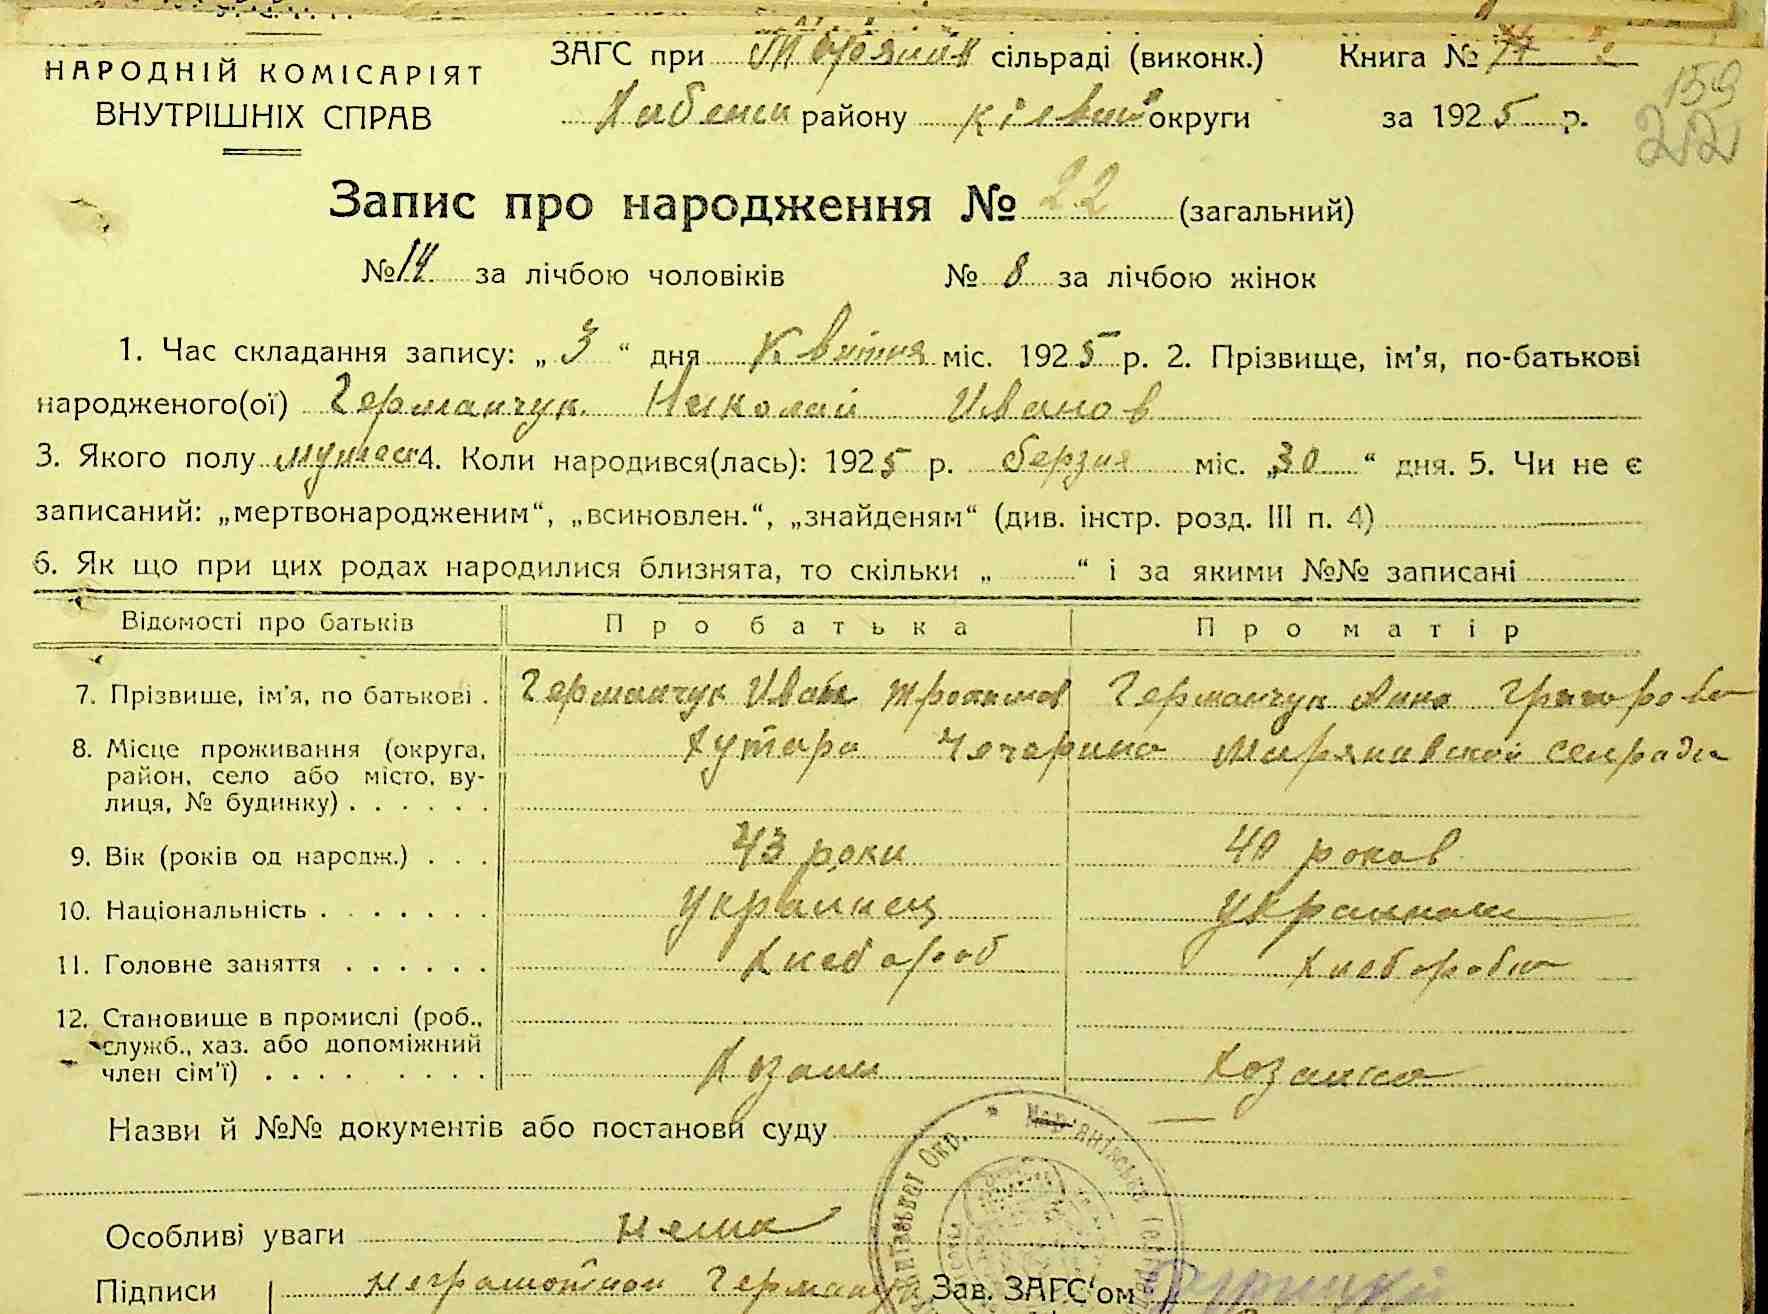 НАРОДНІЙ КОМІСАРІЯТ
ВНУТРІШНІХ СПРАВ
ЗАГС при сільраді (виконк.)
району округи
Книга №
за 1925 р.
159
22
Запис про народження № 22 (загальний)
№ 14 за лічбою чоловіків № 8 за лічбою жінок
1. Час складання запису: „ 3 “ дня Квітня міс. 1925 р. 2. Прізвище, ім'я, по-батькові
народженого(ої) Германчук Николай Иванов
3. Якого полу 4. Коли народився(лась): 1925 р. берзня міс. „30“ дня. 5. Чи не є
записаний: „мертвонародженим“, „всиновлен.“, „знайденям“ (див. інстр. розд. III п. 4)
6. Як що при цих родах народилися близнята, то скільки „ “ і за якими №№ записані
Відомості про батьків Про батька Про матір
7. Прізвище, ім'я, по батькові . Германчук Иван Германчук Анна
8. Місце проживання (округа, Хутара
район, село або місто, ву-
лиця, № будинку) . . . . . .
9. Вік (років од народж.) . . . 43 роки 40 роков
10. Національність . . . . . . . украинец
11. Головне заняття . . . . . . Хлебороб
12. Становище в промислі (роб.,
служб., хаз. або допоміжний
член сім'ї) . . . . . . . . Хозаин Хозаика
Назви й №№ документів або постанови суду
Особливі уваги нема
Підписи Зав. ЗАГС'ом